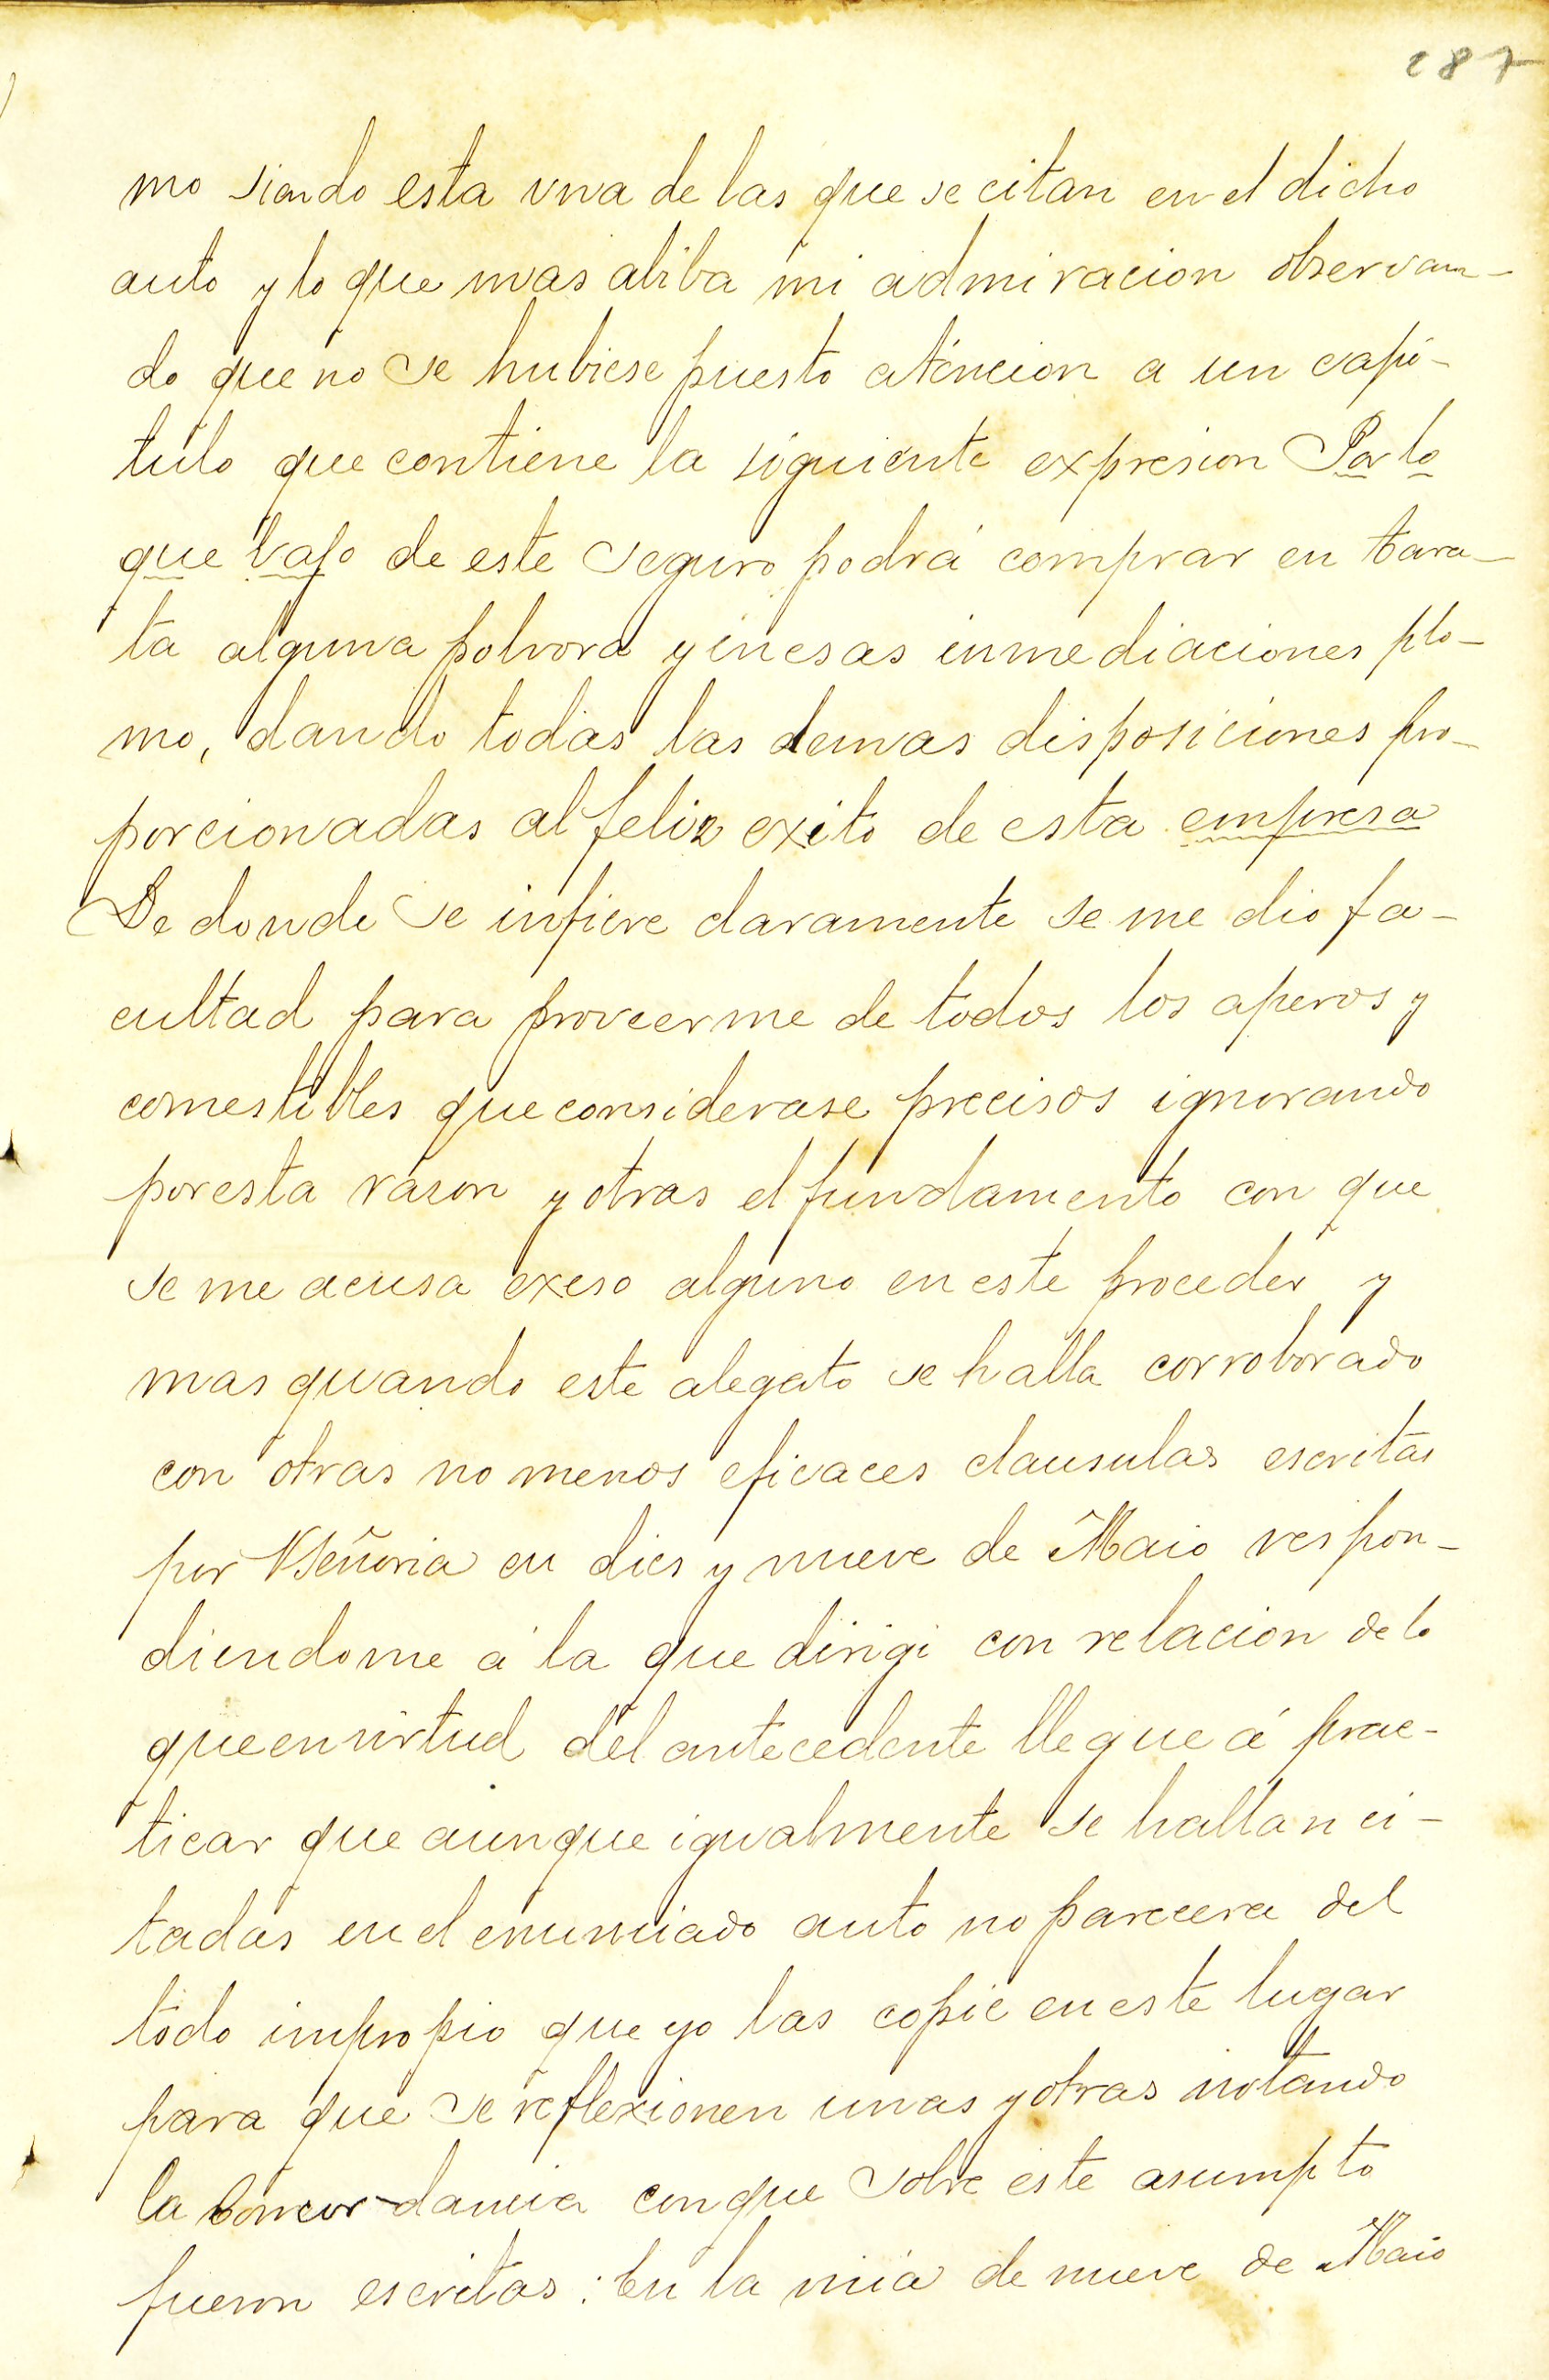 287
mo siendo esta una de las que se citan en el dicho
auto y lo que mas abiba mi admiracion observan-
do que no se hubiese puesto atencion a un capi-
tulo que contiene la siguiente expresion Por lo
que bajo de este seguro podrá comprar en tara-
ta alguna polvora y en esas inmediaciones plo-
mo, dando todas las demas disposiciones pro-
porcionadas al feliz exito de esta empresa
De donde se infiere claramente se me dio fa-
cultad para proveerme de todos los aperos y
comestibles que considerase precisos ignorando
por esta rason y otras el fundamento con que
se me acusa exeso alguno en este proceder y
mas quando este alegato se halla corroborado
con otras no menos eficaces clausulas escritas
por VSeñoria en dies y nueve de Maio respon-
diendome á la que dirigi con relacion de lo
que en virtud del antecedente llegue á prac-
ticar que aunque igualmente se hallan ci-
tadas en el enunciado auto no parecera del
todo impropio que yo las copie en este lugar
para que se reflexionen unas y otras notando
la concordancia con que sobre este asumpto
fueron escritas: En la mia de nueve de Maio